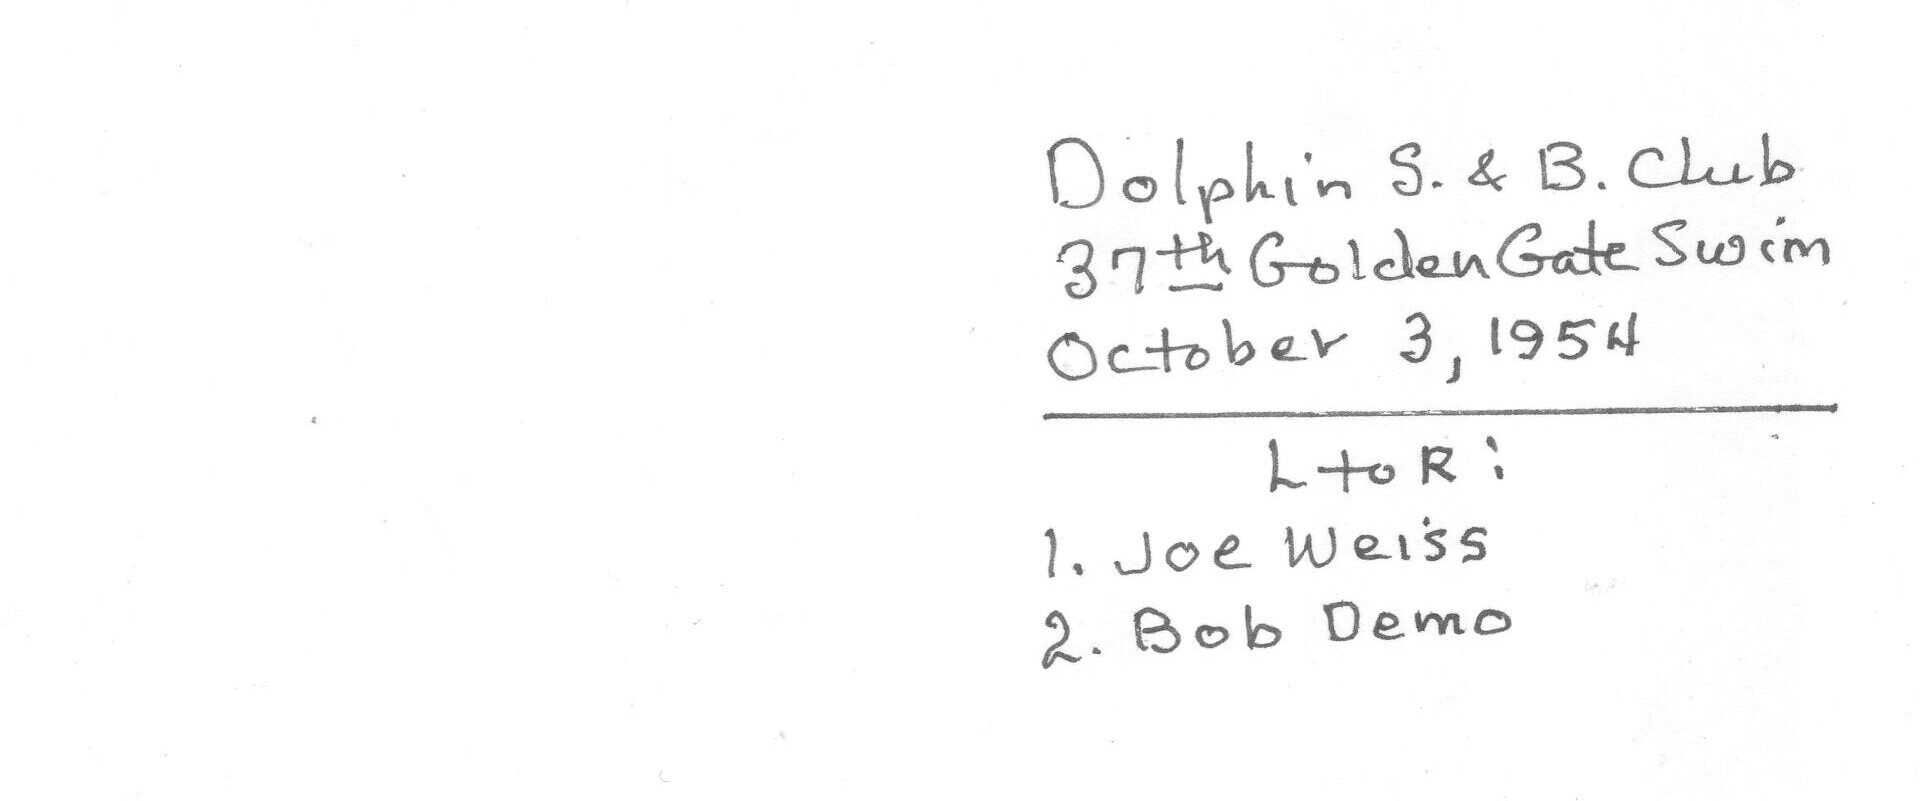 Dolphin S. & B. Club
37th Golden Gate Swim
October 3, 1954
L to R:
1. Joe Weiss
2. Bob Demo